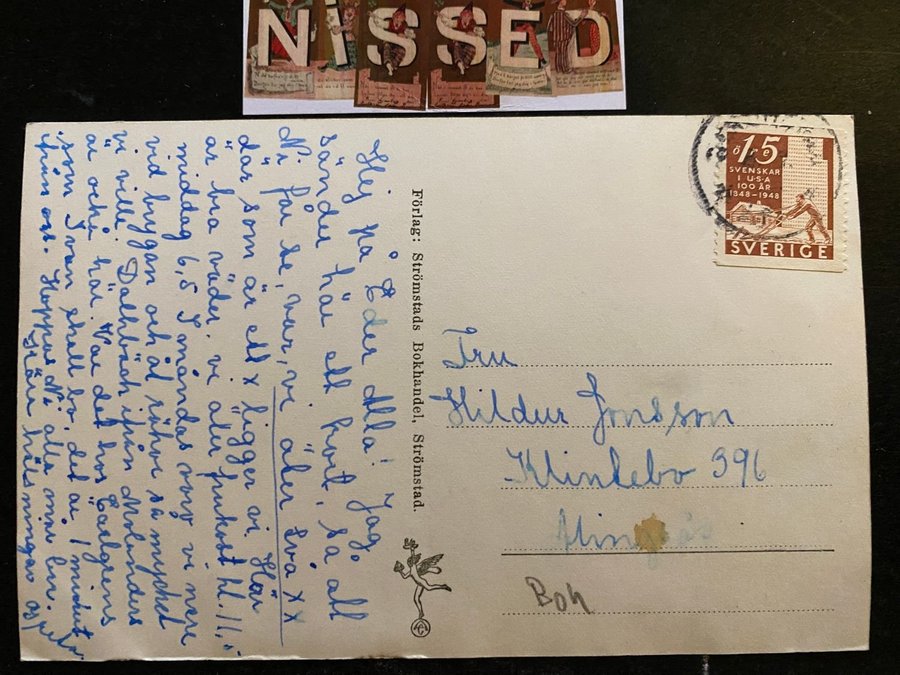 NISSED
Hej på Eder Alla! Jag
sänder här ett kort, så att
Ni får se, var, vi äter två xx
där som är ett x ligger vi. Här
är bra väder. vi äter frukost kl. 11,
middag 6,5 I måndas voro vi nere
vid brygan och åt räkor så mycket
vi ville. Dalhbäch ifrån Molanders
är också här. Var det hos
som Ivan skall bo, det är 1 minut
ifrån oss. Hoppas Ni alla mår bra.
Kära hälsningar
Förlag: Strömstads Bokhandel, Strömstad.
öre 15
SVENSKAR
I U·S·A
100 ÅR
1848-1948
SVERIGE
Fru
Hildur Jonsson
Klintebo 396
Alingsås
Boh